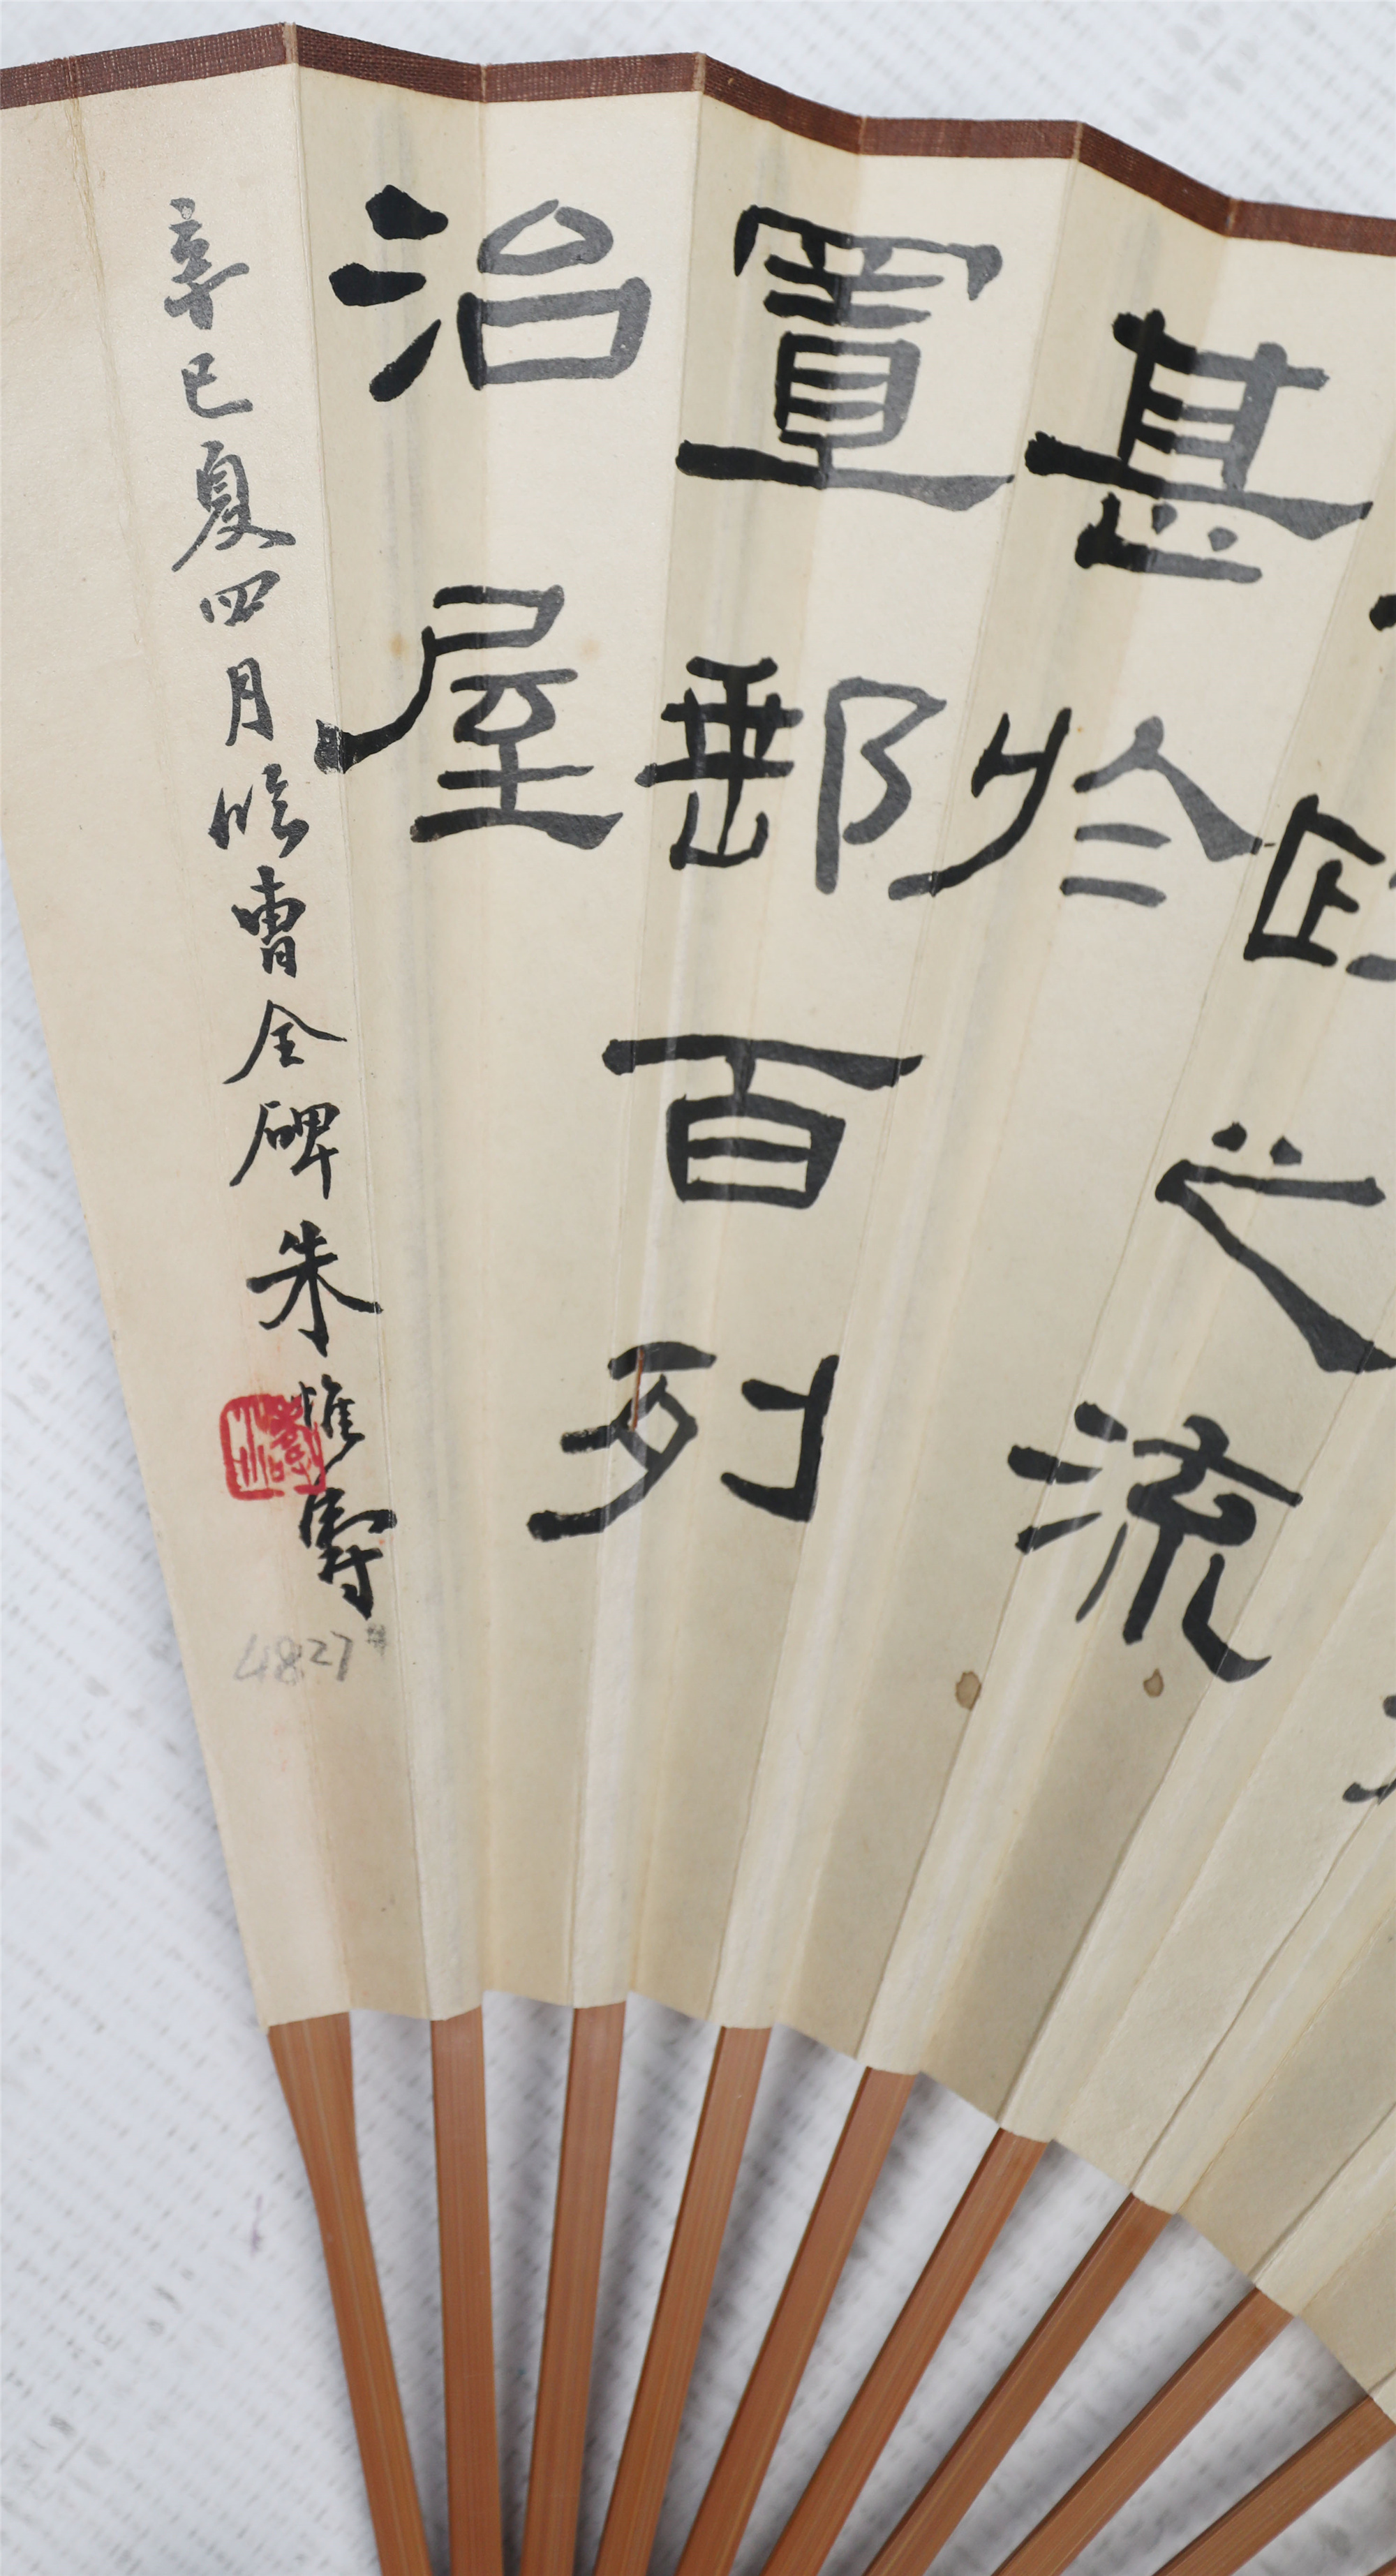 之流
甚於
置郵百列
治屋
辛巳夏四月臨曹全碑朱惟壽
4827#